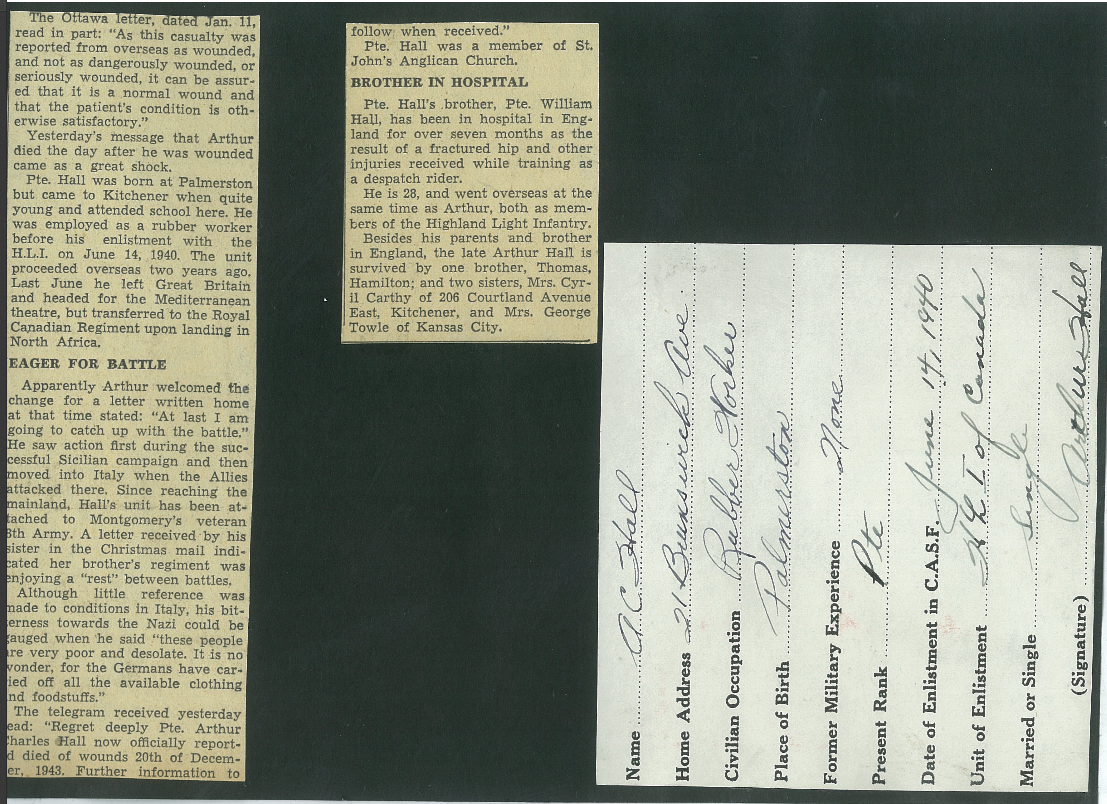 The Ottawa letter, dated Jan. 11,
read in part: “As this casualty was
reported from overseas as wounded,
and not as dangerously wounded, or
seriously wounded, it can be assur-
ed that it is a normal wound and
that the patient's condition is oth-
erwise satisfactory.”
Yesterday's message that Arthur
died the day after he was wounded
came as a great shock.
Pte. Hall was born at Palmerston
but came to Kitchener when quite
young and attended school here. He
was employed as a rubber worker
before his enlistment with the
H.L.I. on June 14, 1940. The unit
proceeded overseas two years ago.
Last June he left Great Britain
and headed for the Mediterranean
theatre, but transferred to the Royal
Canadian Regiment upon landing in
North Africa.
EAGER FOR BATTLE
Apparently Arthur welcomed the
change for a letter written home
at that time stated: “At last I am
going to catch up with the battle.”
He saw action first during the suc-
cessful Sicilian campaign and then
moved into Italy when the Allies
attacked there. Since reaching the
mainland, Hall's unit has been at-
tached to Montgomery's veteran
8th Army. A letter received by his
sister in the Christmas mail indi-
cated her brother's regiment was
enjoying a “rest” between battles.
Although little reference was
made to conditions in Italy, his bit-
erness towards the Nazi could be
gauged when he said “these people
re very poor and desolate. It is no
wonder, for the Germans have car-
ied off all the available clothing
nd foodstuffs.”
The telegram received yesterday
ead: “Regret deeply Pte. Arthur
harles Hall now officially report-
d died of wounds 20th of Decem-
er, 1943. Further information to
follow when received.”
Pte. Hall was a member of St.
John's Anglican Church.
BROTHER IN HOSPITAL
Pte. Hall's brother, Pte. William
Hall, has been in hospital in Eng-
land for over seven months as the
result of a fractured hip and other
injuries received while training as
a despatch rider.
He is 28, and went overseas at the
same time as Arthur, both as mem-
bers of the Highland Light Infantry.
Besides his parents and brother
in England, the late Arthur Hall is
survived by one brother, Thomas,
Hamilton; and two sisters, Mrs. Cyr-
il Carthy of 206 Courtland Avenue
East, Kitchener, and Mrs. George
Towle of Kansas City.
Name A C Hall
Home Address 21 Brunswick Ave.
Civilian Occupation Rubber Worker
Place of Birth Palmerston
Former Military Experience None
Present Rank Pte
Date of Enlistment in C.A.S.F. June 14, 1940
Unit of Enlistment H L I of Canada
Married or Single Single
(Signature) Arthur Hall